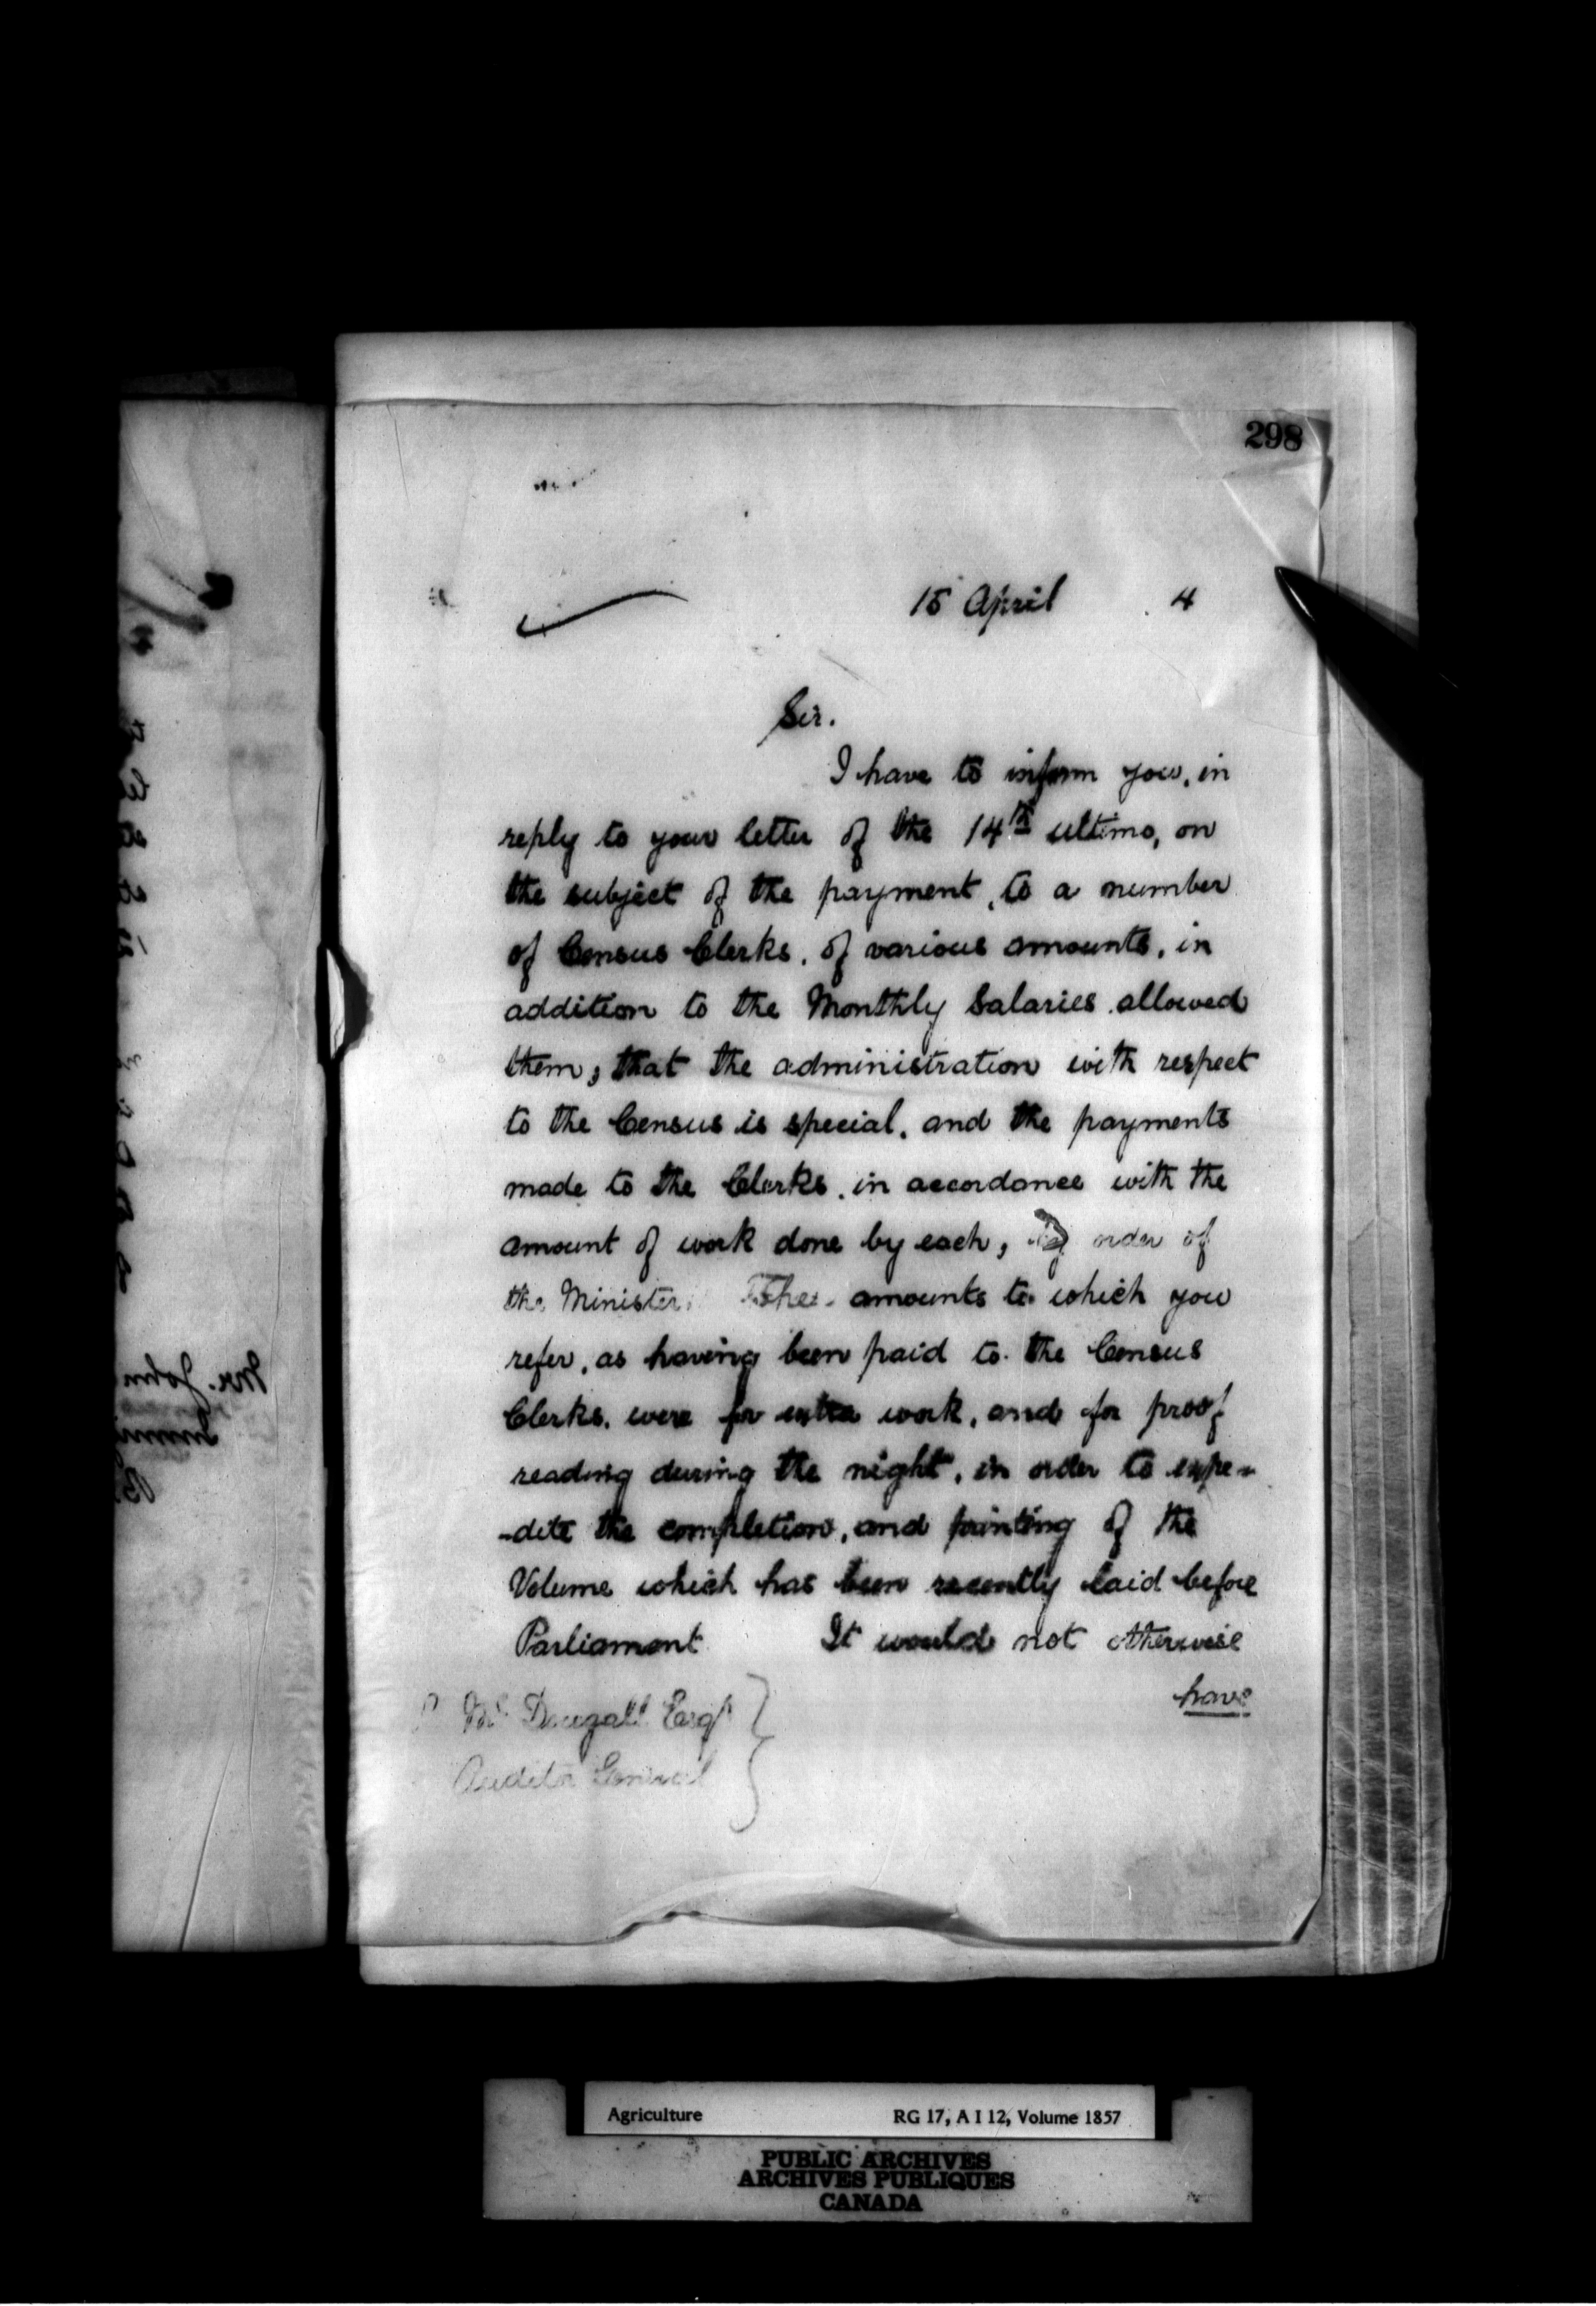 298
15 April 4
Sir.
I have to inform you, in
reply to your letter of the 14th ultimo, on
the subject of the payment, to a number
of Census Clerks, of various amounts, in
addition to the Monthly Salaries allowed
them, that the administration with respect
to the Census is special, and the payments
made to the Clerks, in accordance with the
amount of work done by each, by order of
the Minister. The amounts to which you
refer, as having been paid to the Census
Clerks, were for extra work, and for proof
reading during the night, in order to expe-
-dite the completion, and printing of the
Volume which has been recently laid before
Parliament It would not otherwise
have
Mc Dougall Esqr
Auditor General
Mr. John
Agriculture RG 17, A I 12, Volume 1857
PUBLIC ARCHIVES
ARCHIVES PUBLIQUES
CANADA